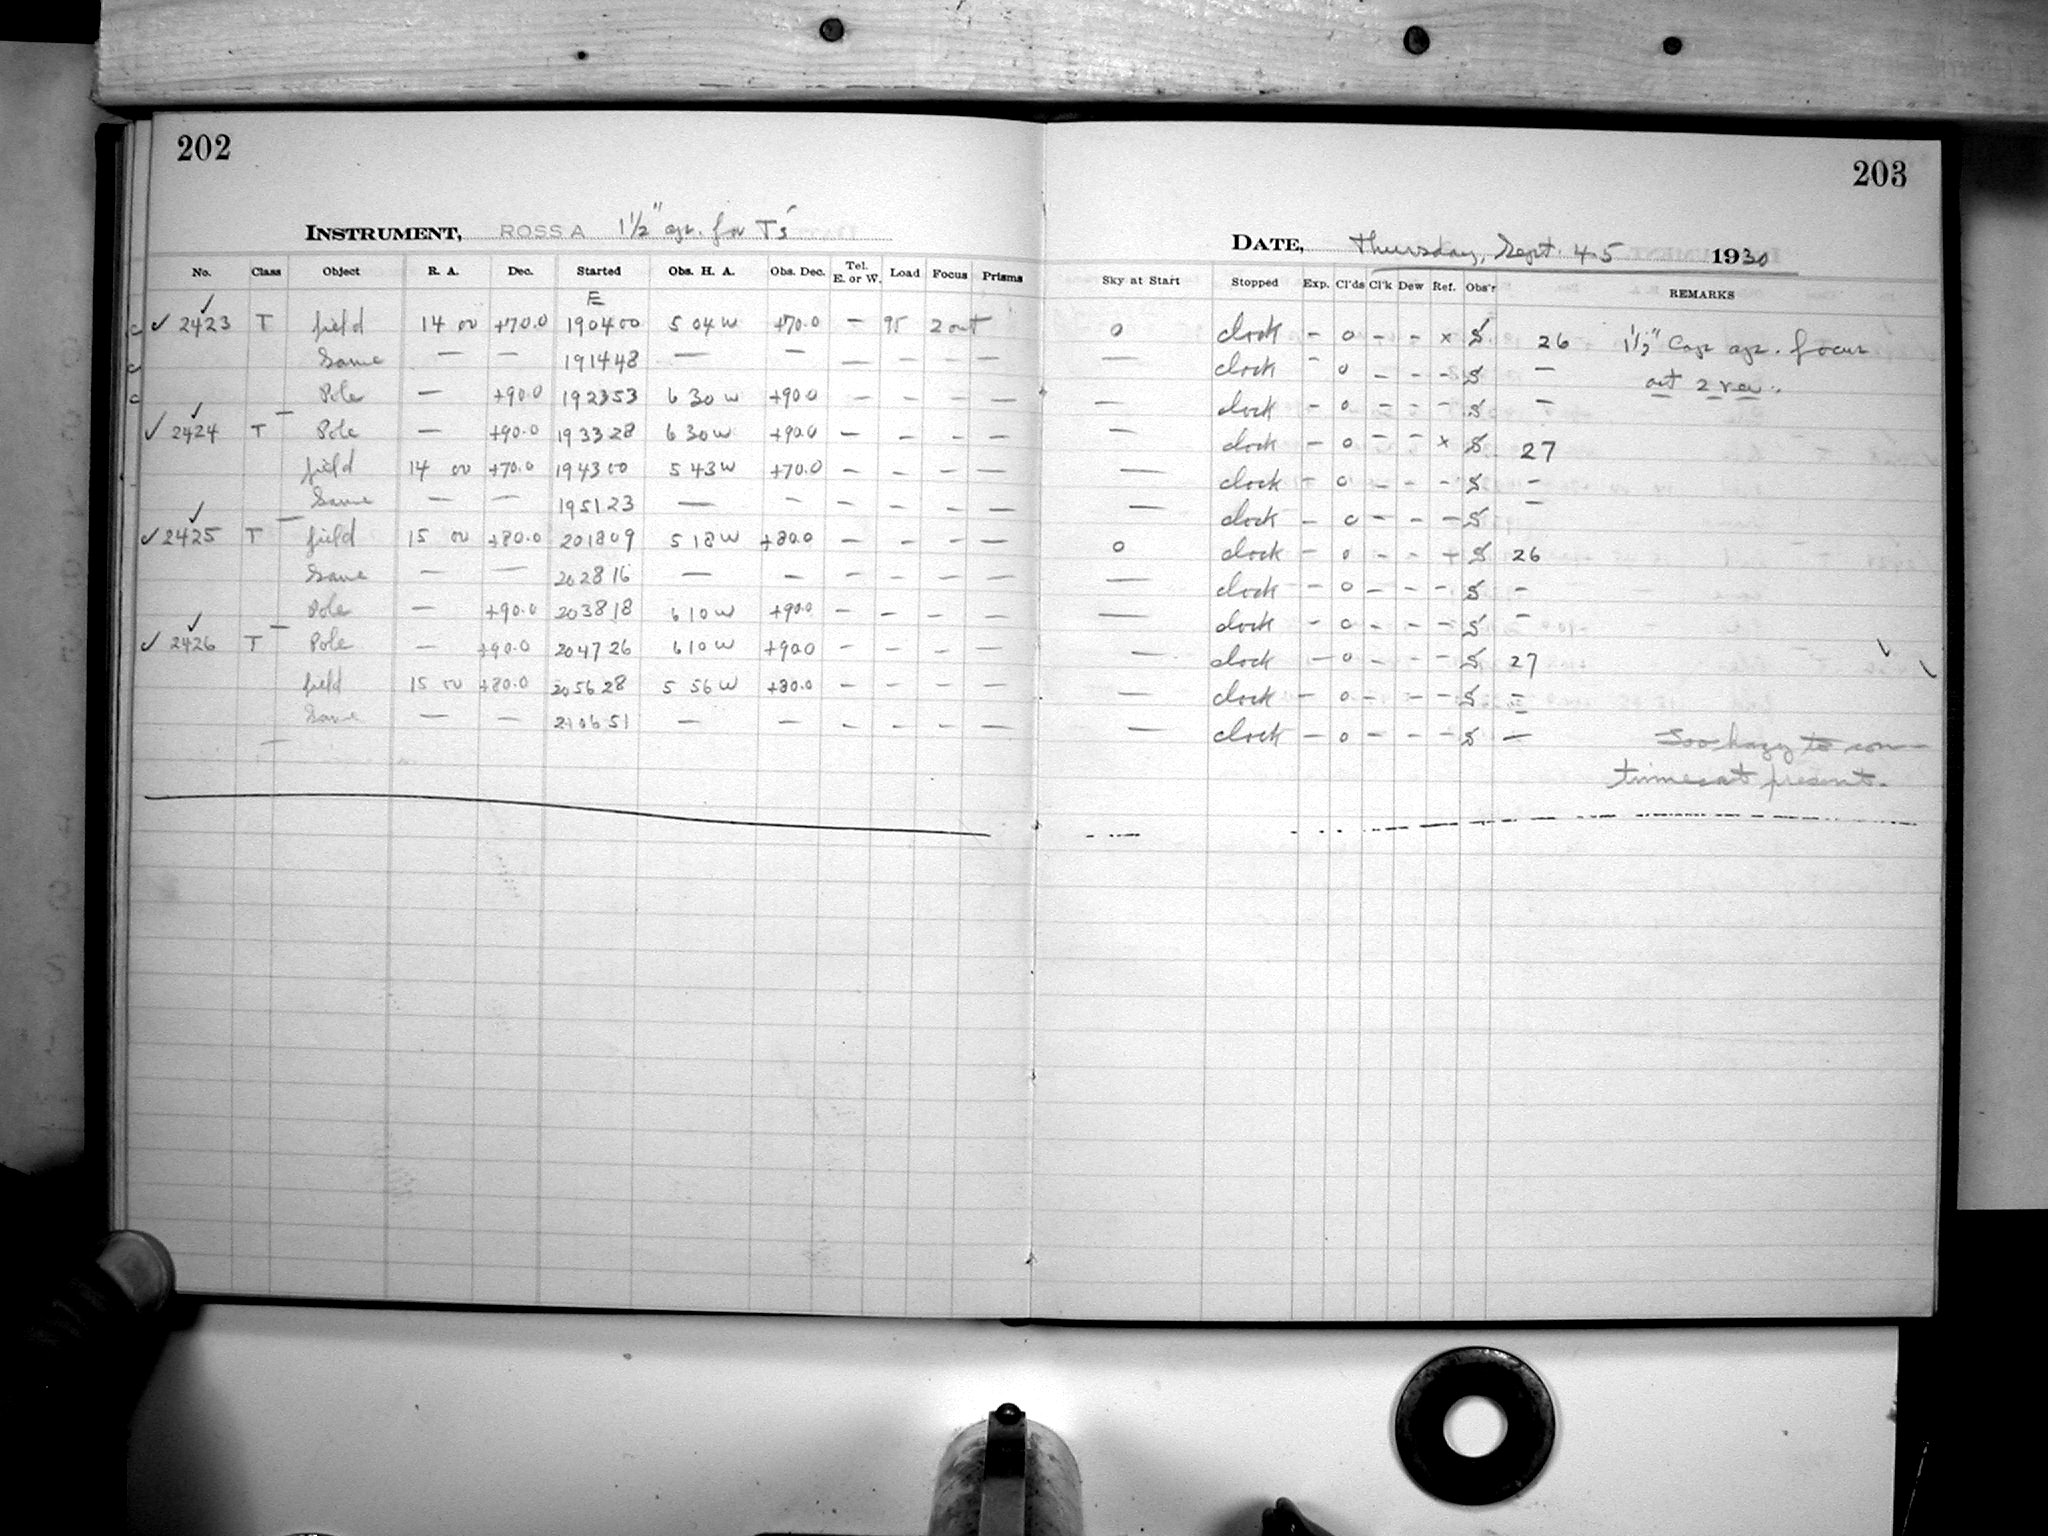 202
INSTRUMENT, ROSS A 1½" ap. for T's
No. Class Object R. A. Dec. Started Obs. H. A. Obs. Dec. Tel. E. or W. Load Focus Prisms
E
c ✓ 2423 T field 14 00 +70.0 190400 5 04 W +70.0 — 95 2 out
c Same — — 191448 — — — — — —
c Pole — +90.0 192353 6 30 W +90.0 — — — —
✓ 2424 T Pole — +90.0 193328 6 30 W +90.0 — — — —
field 14 00 +70.0 194300 5 43 W +70.0 — — — —
Same — — 195123 — — — — — —
✓ 2425 T field 15 00 +80.0 201809 5 18 W +80.0 — — — —
Same — — 202816 — — — — — —
Pole — +90.0 203818 6 10 W +90.0 — — — —
✓ 2426 T Pole — +90.0 204726 6 10 W +90.0 — — — —
field 15 00 +80.0 205628 5 56 W +80.0 — — — —
Same — — 210651 — — — — — —
203
DATE, Thursday, Sept. 4-5 1930
Sky at Start Stopped Exp. Cl'ds Cl'k Dew Ref. Obs'r REMARKS
0 clock – 0 – – x S 26 1½" Cap ap. focus
— clock – 0 – – – S — out 2 rev.
— clock – 0 – – – S —
— clock – 0 – – x S 27
— clock – 0 – – – S –
— clock – 0 – – – S –
0 clock – 0 – – – S 26
— clock – 0 – – – S –
— clock – 0 – – – S –
— clock – 0 – – – S 27
— clock – 0 – – – S =
— clock – 0 – – – S — Too hazy to con-
tinue at present.